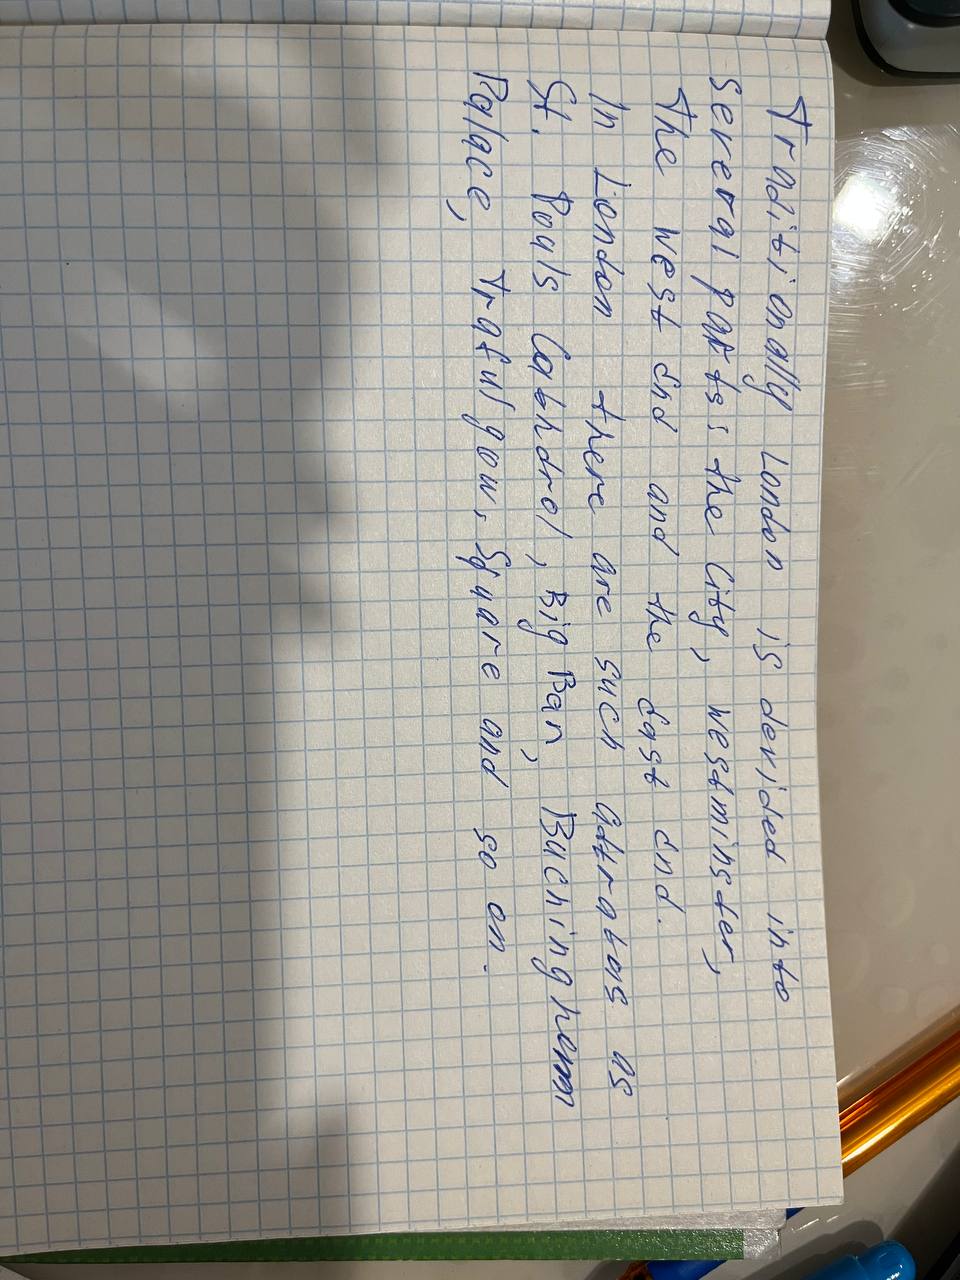 Traditionally London is devided into
several parts: the City, Westminster,
The West End and the East End.
In London there are such attratons as
St. Pouls Cathdrol, Big Ban, Buchinghem
Palace, Trafulgow, Square and so on.